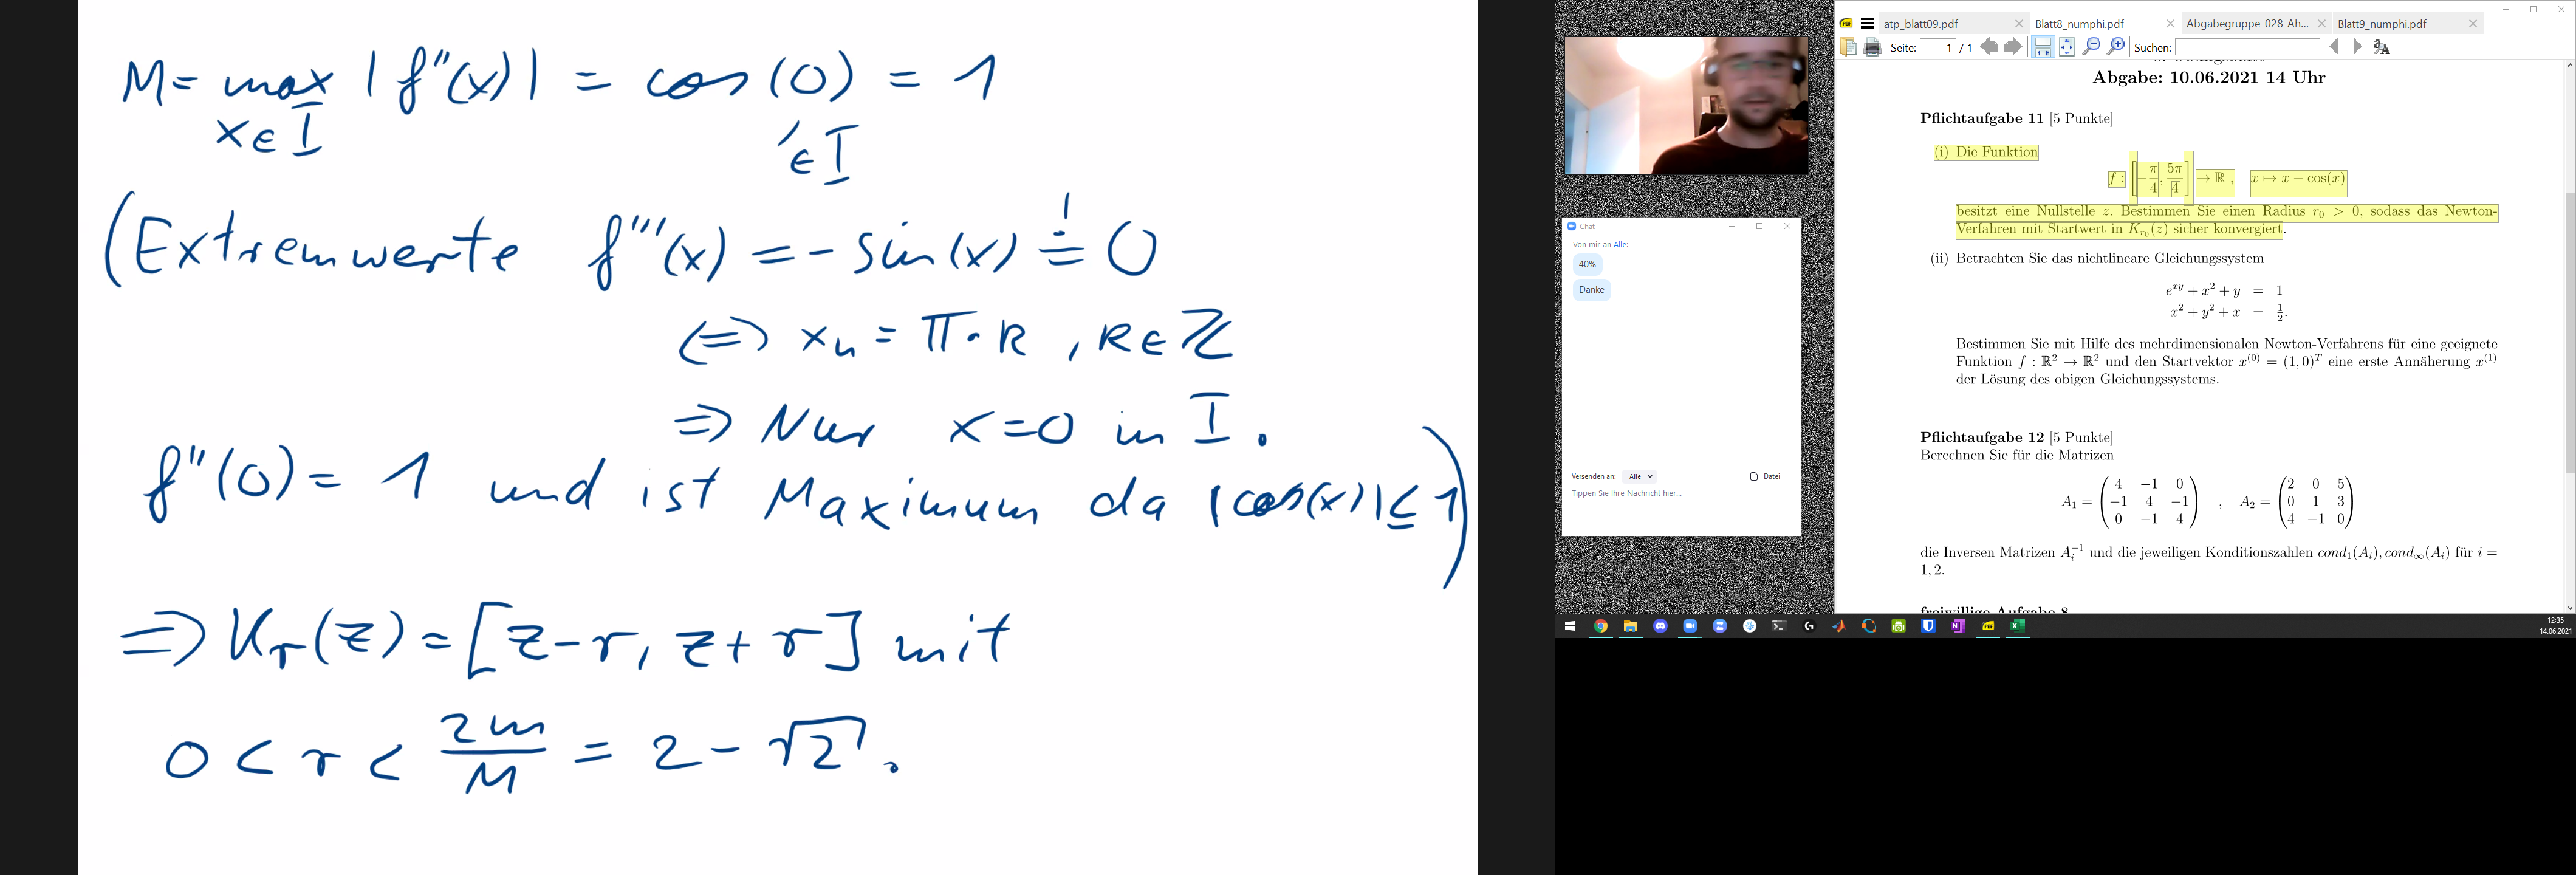 M = max | f''(x) | = cos (0) = 1
x ∈ I
∈ I
(Extremwerte f'''(x) = - sin(x) != 0
<=> x_k = π · k , k ∈ ℤ
=> Nur x=0 in I.
f''(0) = 1 und ist Maximum da |cos(x)| ≤ 1)
=> K_r(z) = [z-r, z+r] mit
0 < r < 2m/M = 2 - √2.
Chat
Von mir an Alle:
40%
Danke
Versenden an: Alle Datei
Tippen Sie Ihre Nachricht hier...
atp_blatt09.pdf Blatt8_numphi.pdf Abgabegruppe 028-Ah... Blatt9_numphi.pdf
Seite: 1 / 1 Suchen:
Abgabe: 10.06.2021 14 Uhr
Pflichtaufgabe 11 [5 Punkte]
(i) Die Funktion
f : [-π/4, 5π/4] → ℝ , x ↦ x − cos(x)
besitzt eine Nullstelle z. Bestimmen Sie einen Radius r₀ > 0, sodass das Newton-
Verfahren mit Startwert in K_{r₀}(z) sicher konvergiert.
(ii) Betrachten Sie das nichtlineare Gleichungssystem
e^{xy} + x² + y = 1
x² + y² + x = 1/2.
Bestimmen Sie mit Hilfe des mehrdimensionalen Newton-Verfahrens für eine geeignete
Funktion f : ℝ² → ℝ² und den Startvektor x⁽⁰⁾ = (1, 0)ᵀ eine erste Annäherung x⁽¹⁾
der Lösung des obigen Gleichungssystems.
Pflichtaufgabe 12 [5 Punkte]
Berechnen Sie für die Matrizen
4 −1 0 2 0 5
A₁ = −1 4 −1 , A₂ = 0 1 3
0 −1 4 4 −1 0
die Inversen Matrizen A_i^{-1} und die jeweiligen Konditionszahlen cond₁(A_i), cond_∞(A_i) für i =
1, 2.
freiwillige Aufgabe 8
12:35
14.06.2021